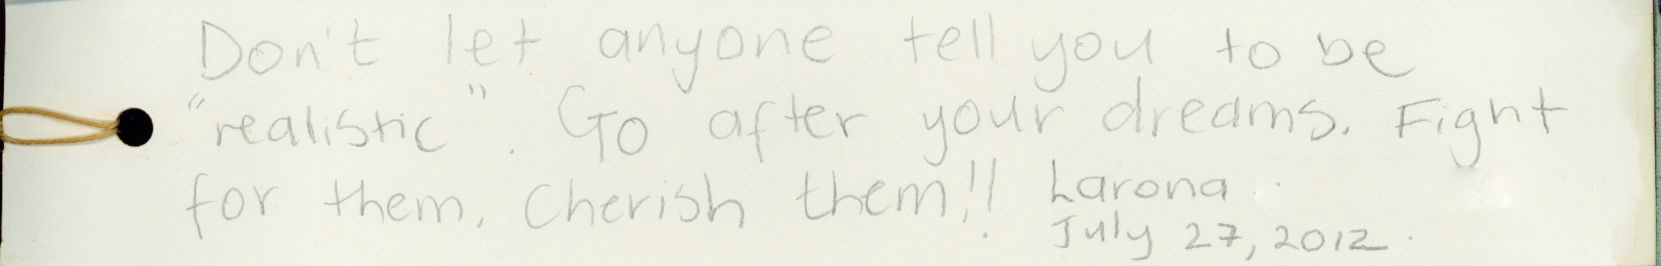 Don't let anyone tell you to be
"realistic". Go after your dreams. Fight
for them. Cherish them!! Larona
July 27, 2012.